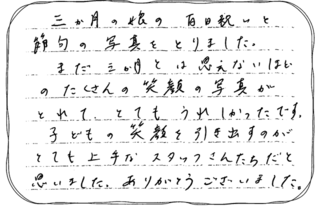 三か月の娘の百日祝いと
節句の写真をとりました。
まだ三か月とは思えないほど
のたくさんの笑顔の写真が
とれて、とてもうれしかったです。
子どもの笑顔を引き出すのが
とても上手なスタッフさんたちだと
思いました。ありがとうございました。